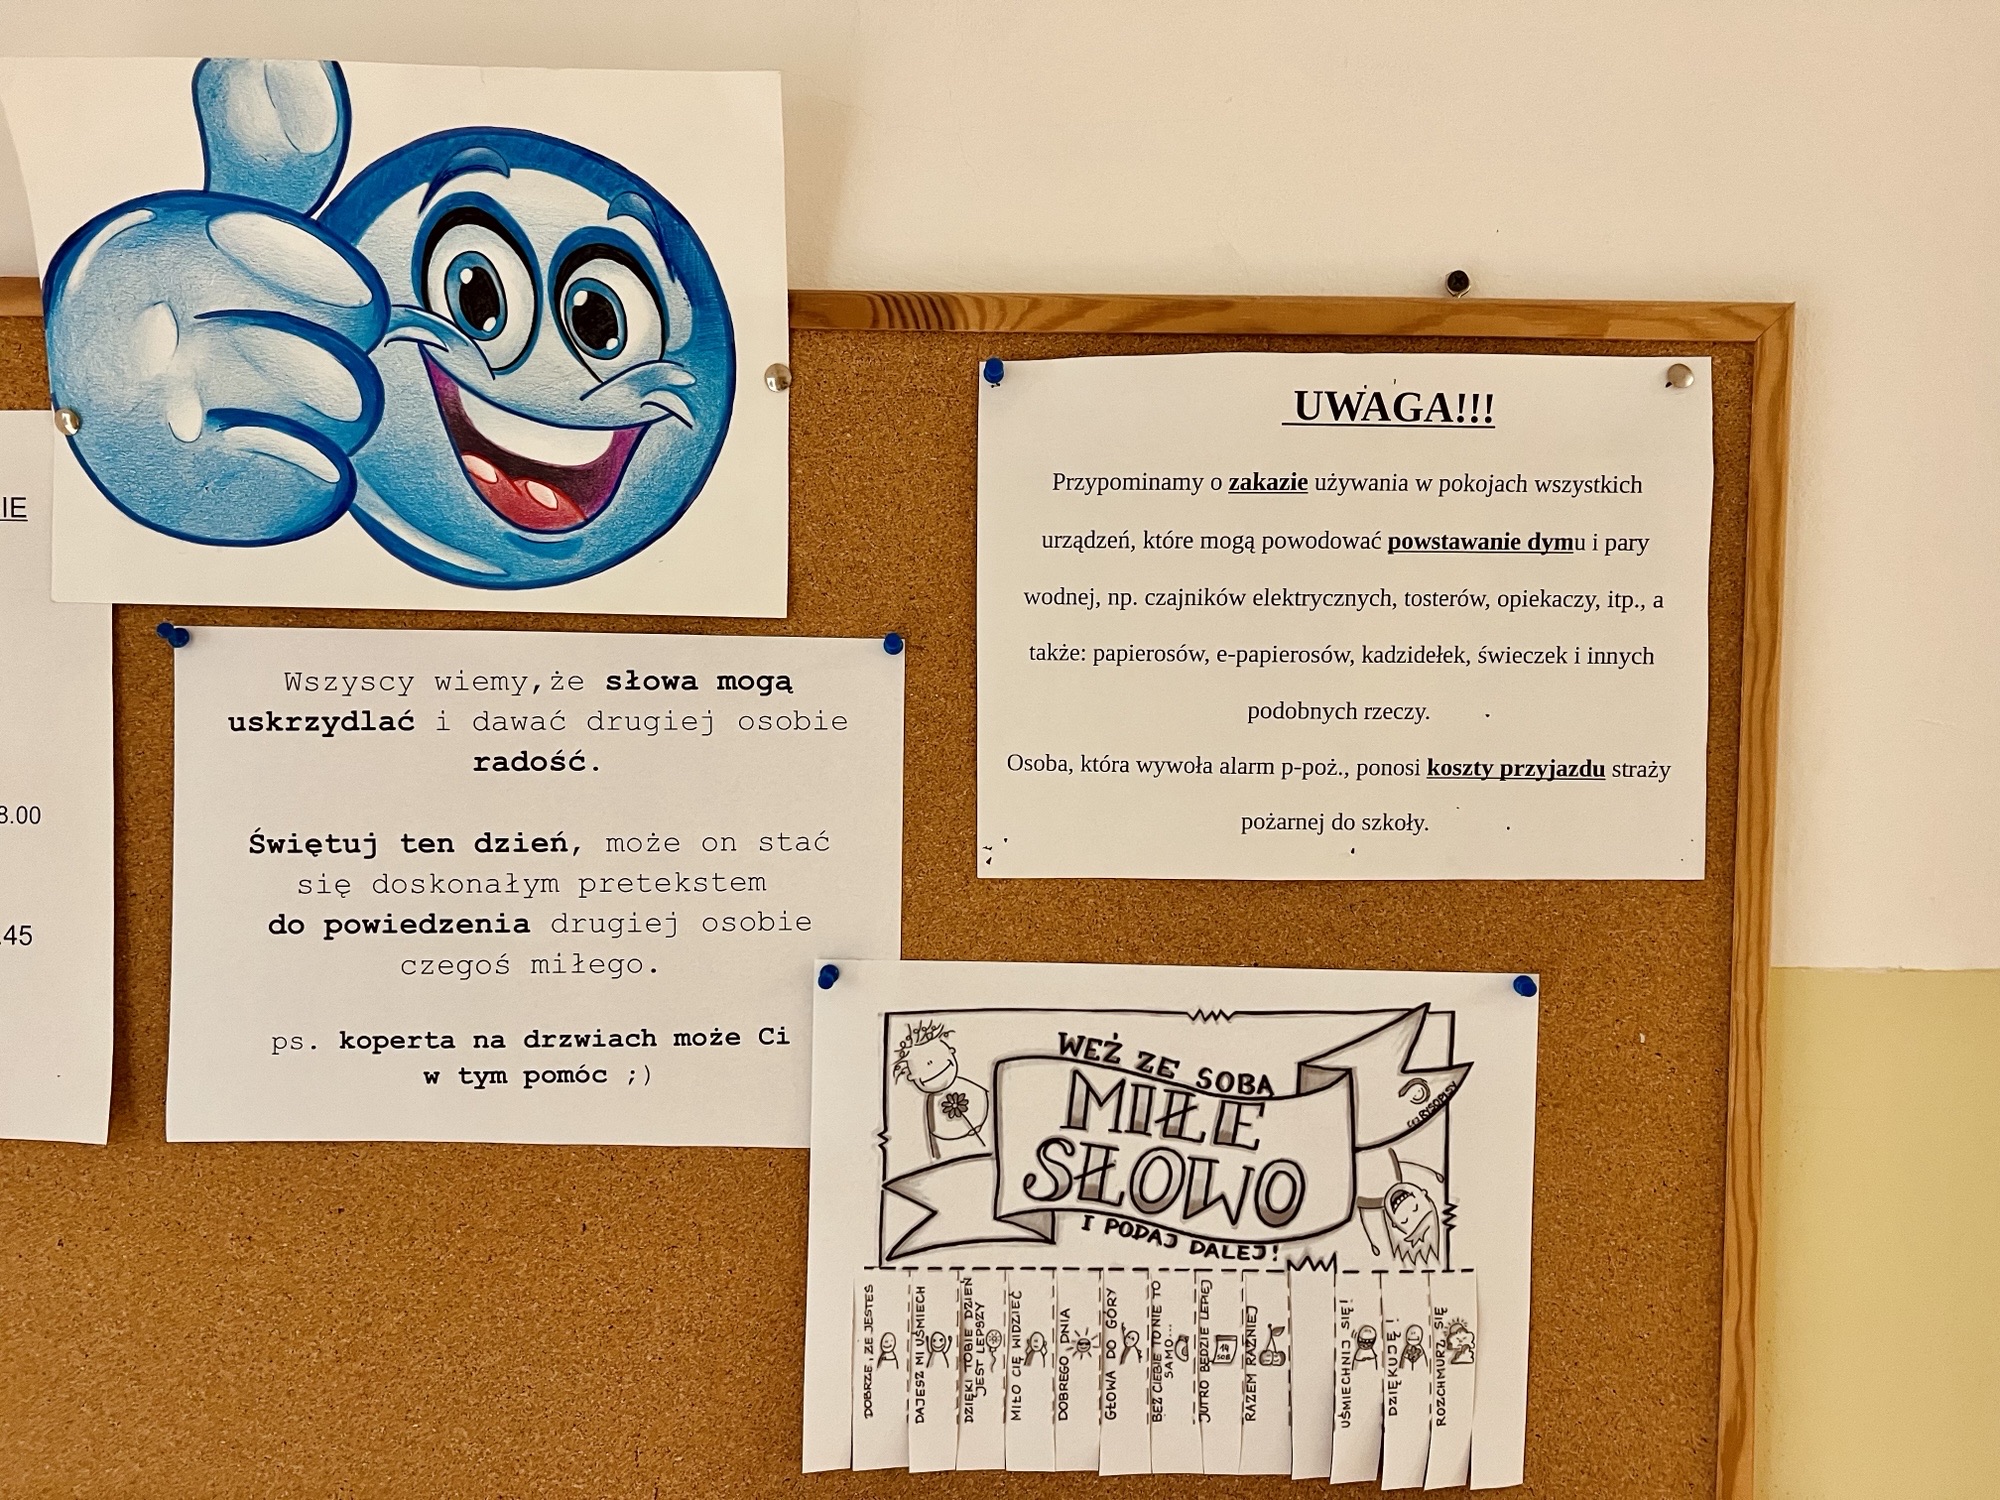 IE
8.00
.45
Wszyscy wiemy,że słowa mogą
uskrzydlać i dawać drugiej osobie
radość.
Świętuj ten dzień, może on stać
się doskonałym pretekstem
do powiedzenia drugiej osobie
czegoś miłego.
ps. koperta na drzwiach może Ci
w tym pomóc ;)
UWAGA!!!
Przypominamy o zakazie używania w pokojach wszystkich
urządzeń, które mogą powodować powstawanie dymu i pary
wodnej, np. czajników elektrycznych, tosterów, opiekaczy, itp., a
także: papierosów, e-papierosów, kadzidełek, świeczek i innych
podobnych rzeczy.
Osoba, która wywoła alarm p-poż., ponosi koszty przyjazdu straży
pożarnej do szkoły.
WEŹ ZE SOBĄ
MIŁE
SŁOWO
I PODAJ DALEJ!
RYSOPISY
DOBRZE, ŻE JESTEŚ
DAJESZ MI UŚMIECH
DZIĘKI TOBIE DZIEŃ
JEST LEPSZY
MIŁO CIĘ WIDZIEĆ
DOBREGO DNIA
GŁOWA DO GÓRY
BEZ CIEBIE TO NIE TO
SAMO...
JUTRO BĘDZIE LEPIEJ
RAZEM RAŹNIEJ
UŚMIECHNIJ SIĘ!
DZIĘKUJĘ!
ROZCHMURZ SIĘ